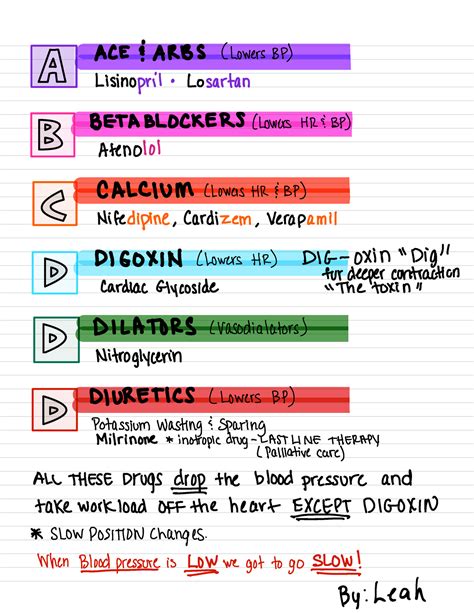 A ACE & ARBS (Lowers BP)
Lisinopril · Losartan
B BETABLOCKERS (Lowers HR & BP)
Atenolol
C CALCIUM (Lowers HR & BP)
Nifedipine, Cardizem, Verapamil
D DIGOXIN (Lowers HR) DIG-oxin "Dig"
Cardiac Glycoside fur deeper contraction
"The toxin"
D DILATORS (Vasodialators)
Nitroglycerin
D DIURETICS (Lowers BP)
Potassium Wasting & Sparing
Milrinone * inotropic drug - LAST LINE THERAPY
(Palliative care)
ALL THESE DRUGS drop the blood pressure and
take workload off the heart EXCEPT DIGOXIN
* SLOW POSITION CHANGES.
When Blood pressure is LOW we got to go SLOW!
By: Leah